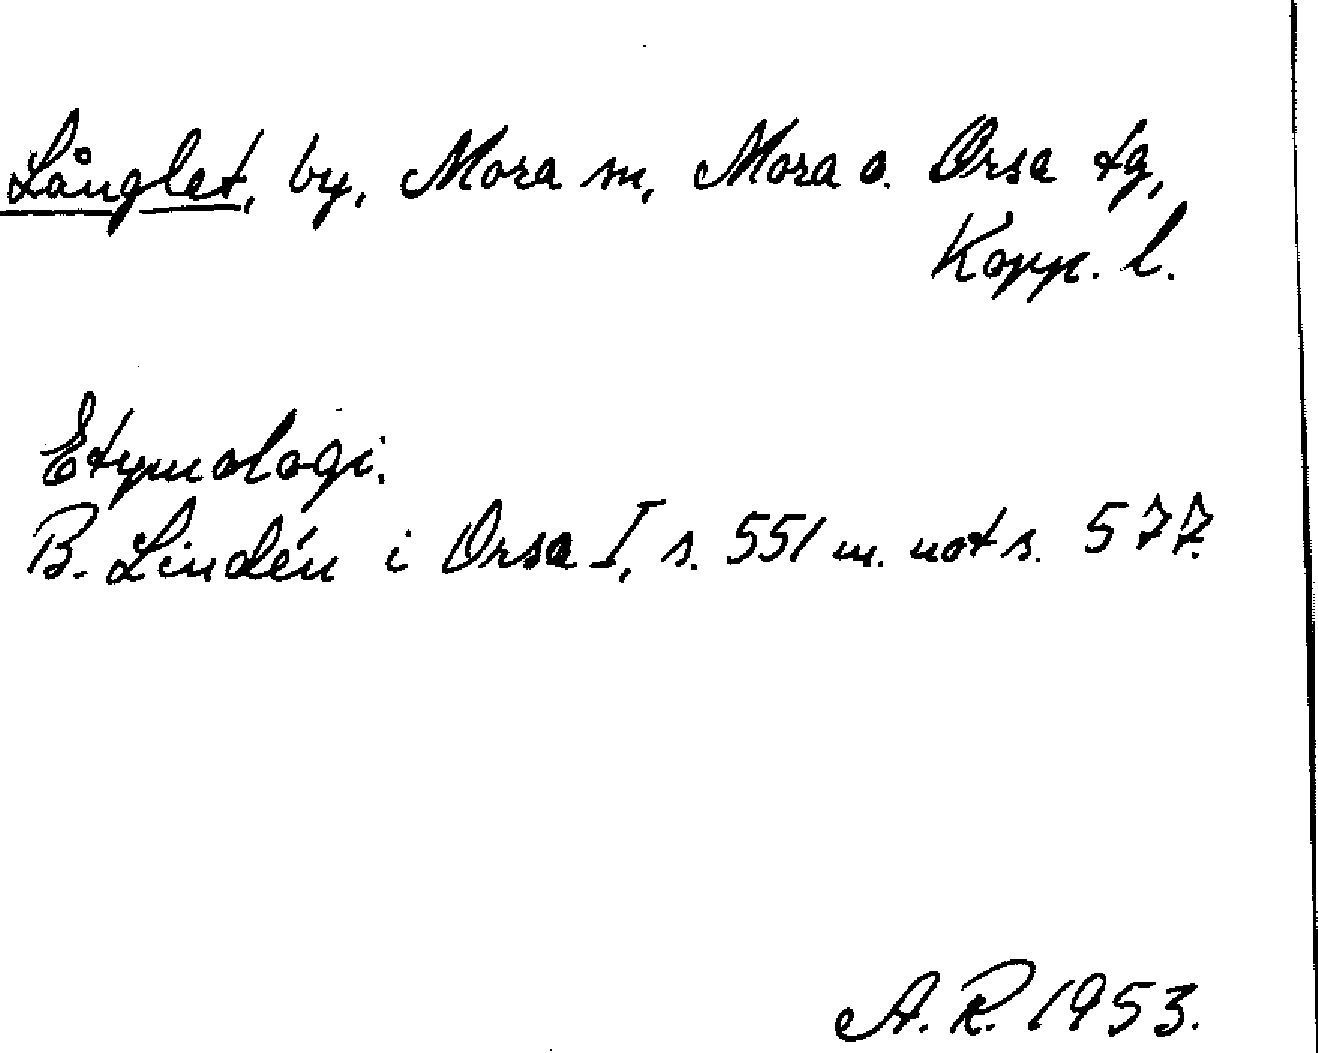 Långlet, by, Mora sn, Mora o. Orsa tg,
Kopp. l.
Etymologi.
B. Lindén i Orsa I, s. 551 m. not s. 577.
A. R. 1953.